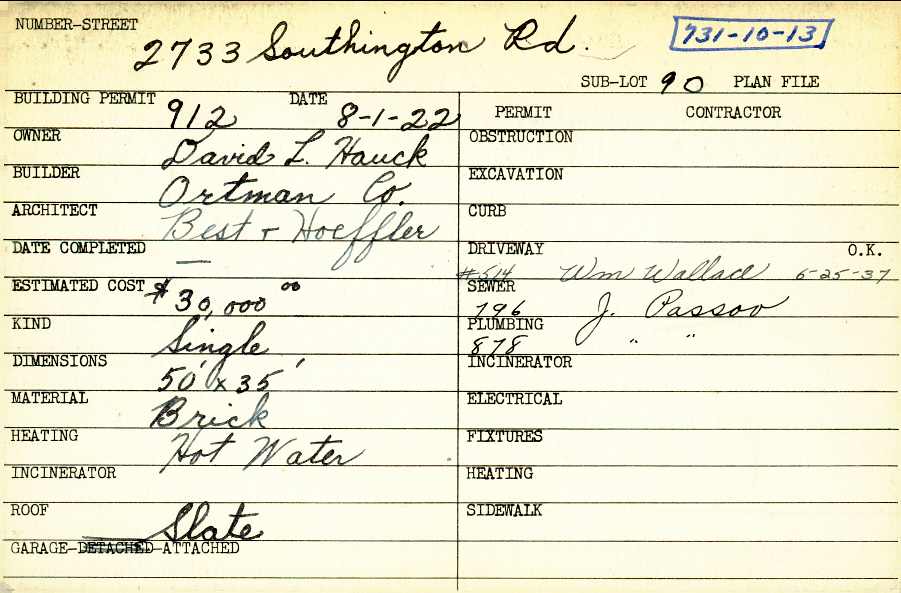 NUMBER-STREET
2733 Southington Rd.
731-10-13
SUB-LOT 90 PLAN FILE
BUILDING PERMIT 912 DATE 8-1-22
OWNER David L. Hauck
BUILDER Ortman Co.
ARCHITECT Best + Hoeffler
DATE COMPLETED —
ESTIMATED COST $30,000 00
KIND Single
DIMENSIONS 50' x 35'
MATERIAL Brick
HEATING Hot Water
INCINERATOR
ROOF Slate
GARAGE-DETACHED-ATTACHED
PERMIT CONTRACTOR
OBSTRUCTION
EXCAVATION
CURB
DRIVEWAY O.K.
#514 Wm Wallace 6-25-37
SEWER
796 J. Passov
PLUMBING
878 " "
INCINERATOR
ELECTRICAL
FIXTURES
HEATING
SIDEWALK